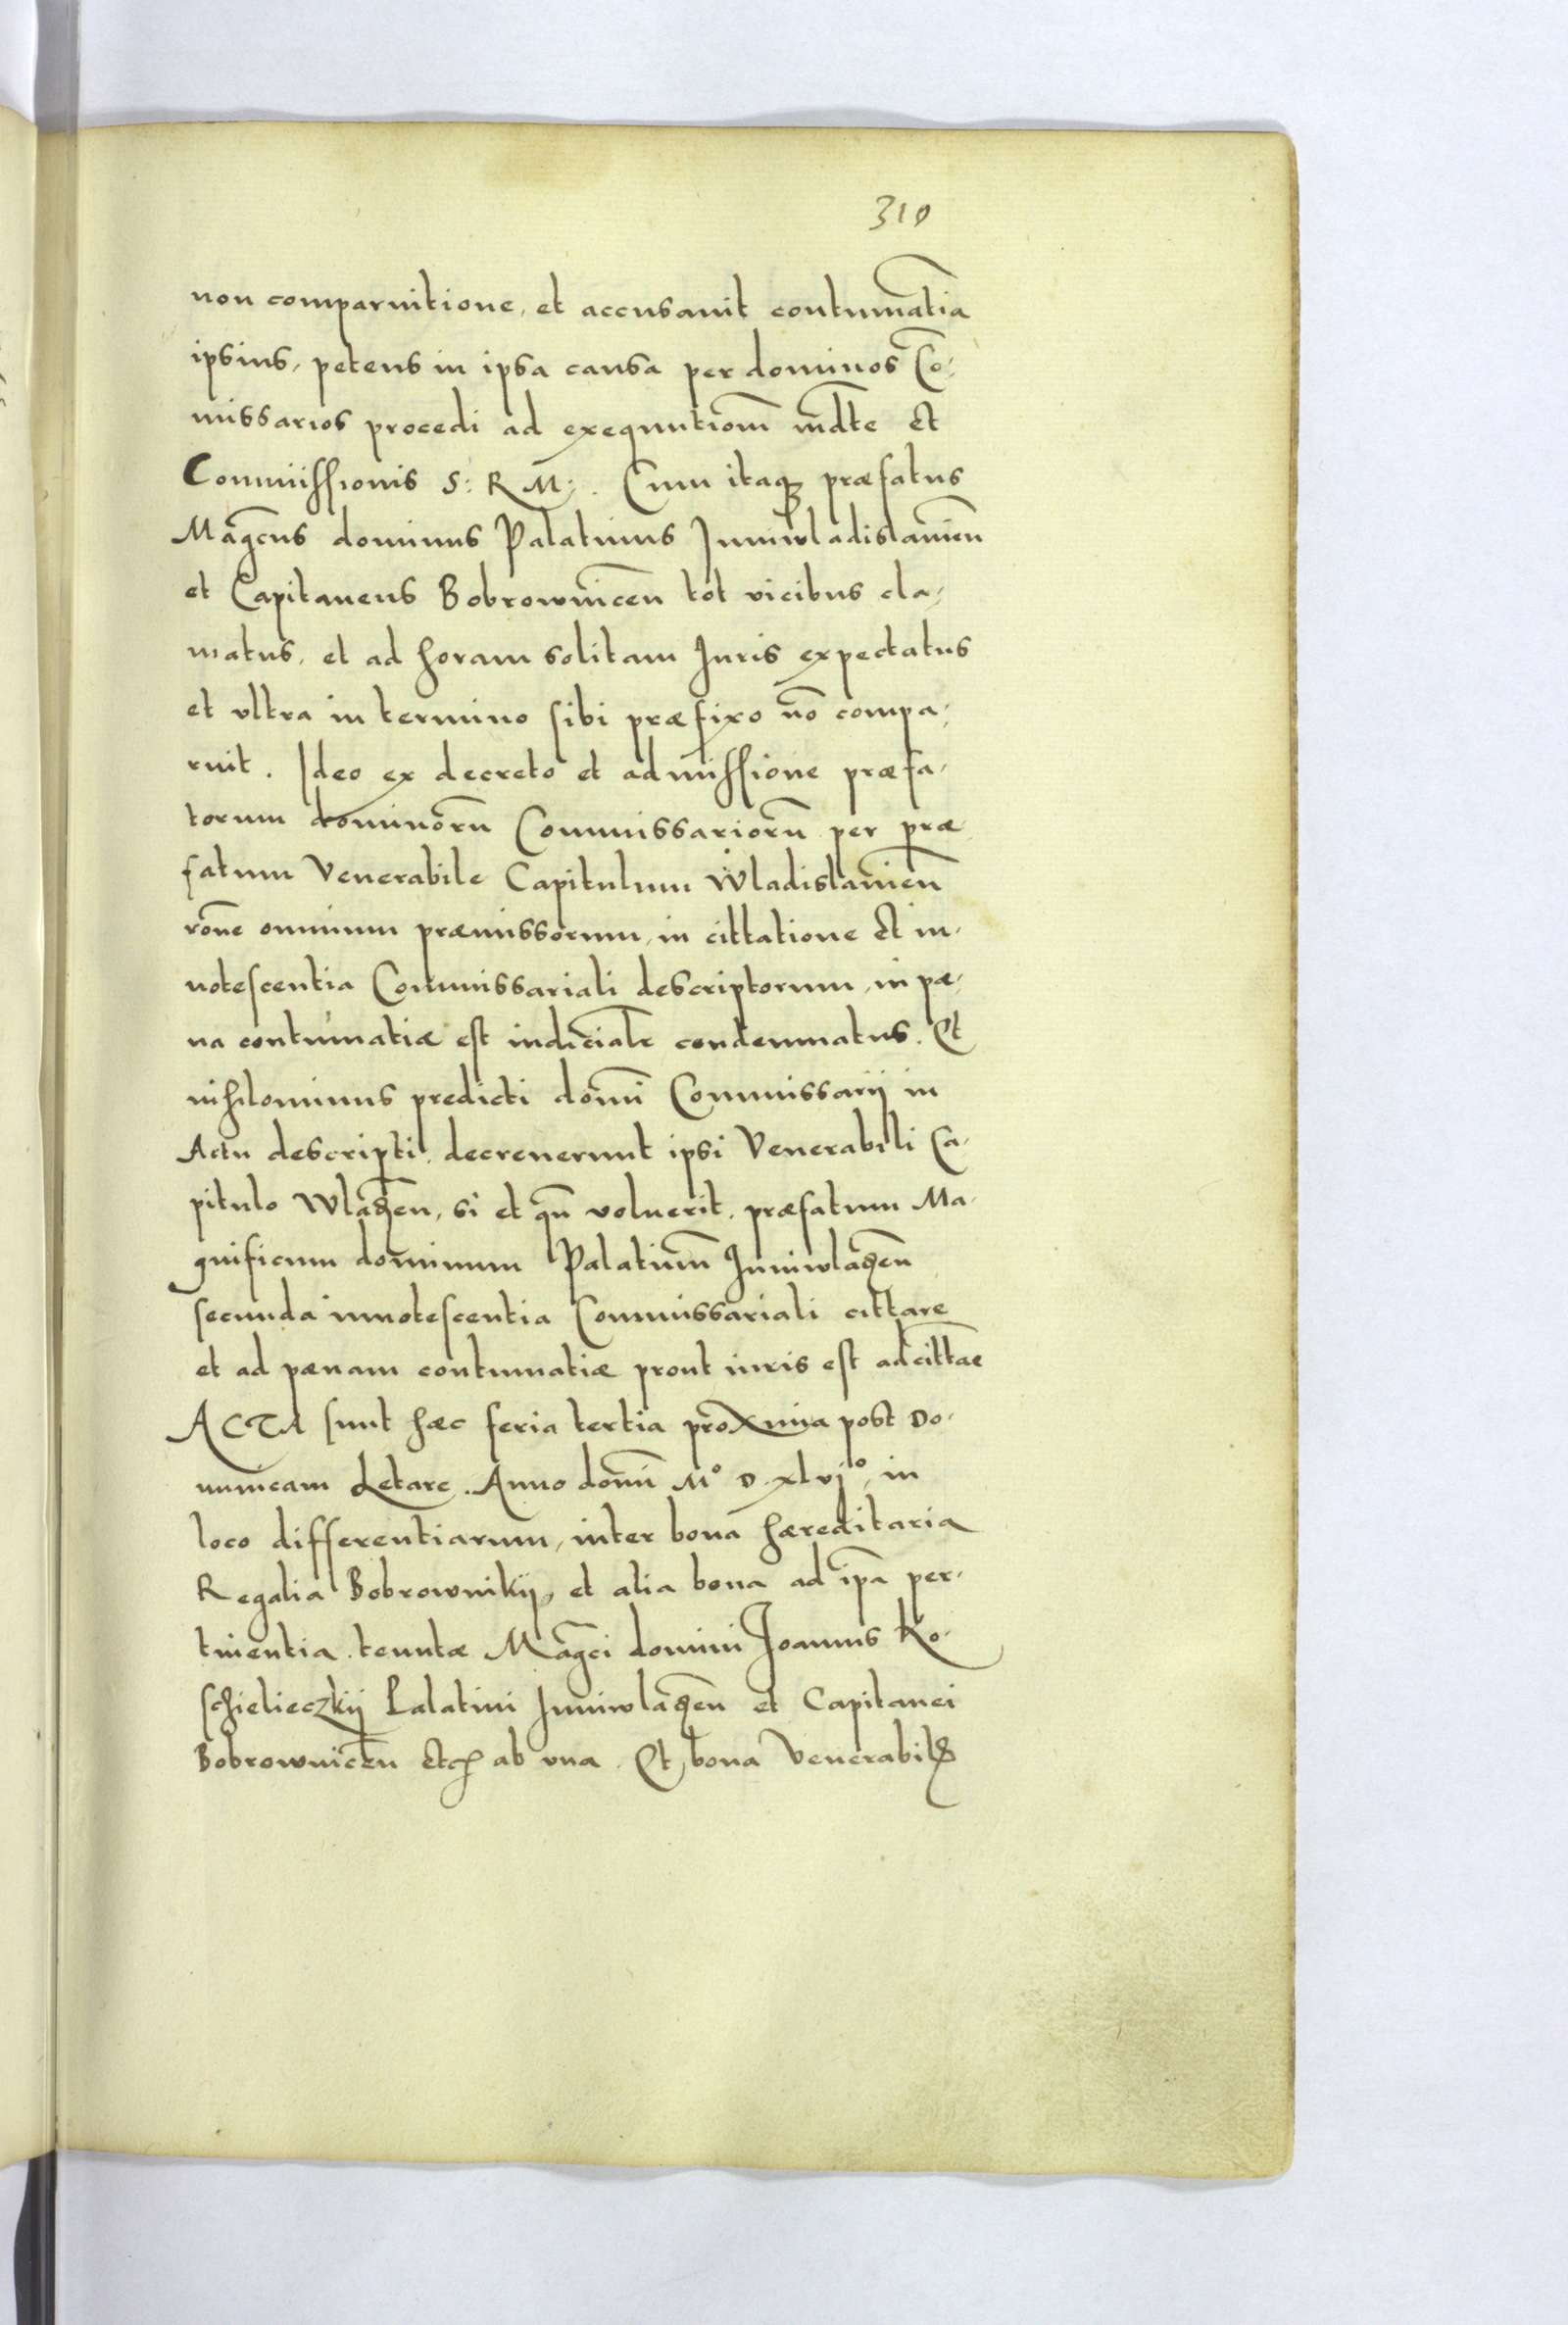 310
non comparuitione, et accusauit contumatiã
ipsius, petens in ipsa causa per dominos Cõ-
missarios procedi ad exequutionẽ mãdte et
Commissionis S: R M: . Cum itaq₃ præfatus
Magc̃us dominus Palatinus Juniwladislauieñ
et Capitaneus Bobrowniceñ tot vicibus cla-
matus, et ad horam solitam Juris expectatus
et vltra in termino sibi præfixo nõ compa-
ruit. Ideo ex decreto et admissione præfa-
torum dominorũ Commissariorũ per præ
fatum Venerabile Capitulum Wladislauieñ
rõne omnium præmissorum, in cittatione et in-
notescentia Commissariali descriptorum, in pæ-
na contumatiæ est iudicialr̃ condemnatus. Et
nihilominus predicti domĩ Commissarij in
Actu descripti, decreuerunt ipsi Venerabili Ca-
pitulo Wlaðen̄, si et qñ voluerit, præfatum Ma-
gnificum dominum Palatinũ Juniwlaðen̄
secunda innotescentia Commissariali cittare
et ad pænam contumatiæ prout iuris est adcittãe
ACTA sunt hæc feria tertia proxima post Do-
minicam Letare. Anno domĩ Mº D. xlvjº, in
loco differentiarum, inter bona hæreditaria
Regalia Bobrownikij, et alia bona ad ip̃a per-
tinentia, tenutæ Magc̃i domini Joannis Ko-
schieliecʒkij Palatini Juniwlaðen̄ et Capitanei
Bobrowniceñ etc̃ ab vna. Et bona Venerabilis